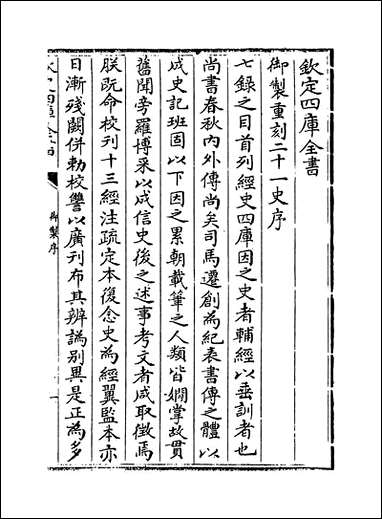 欽定四庫全書
御製重刻二十一史序
七錄之目首列經史四庫因之史者輔經以垂訓者也
尚書春秋內外傳尚矣司馬遷創為紀表書傳之體以
成史記班固以下因之累朝載筆之人類皆嫺掌故貫
舊聞旁羅博采以成信史後之述事考文者咸取徵焉
朕既命校刊十三經注疏定本復念史為經翼監本亦
日漸殘闕併勅校讐以廣刊布其辨譌別異是正為多
御製序